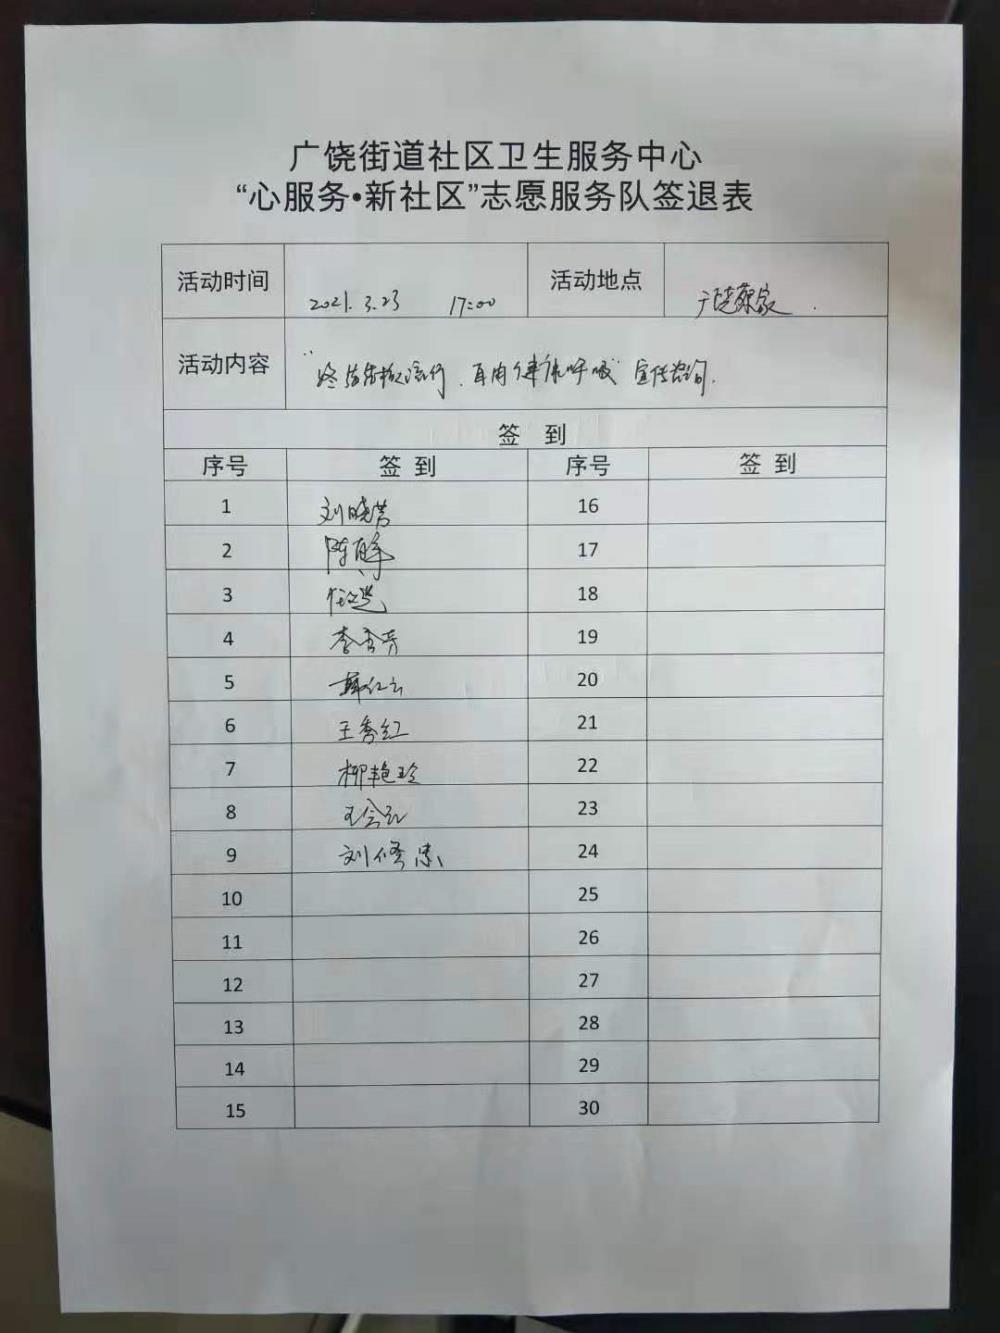 广饶街道社区卫生服务中心
“心服务•新社区”志愿服务队签退表
活动时间 2021.3.23 17:00 活动地点 广饶颜家.
活动内容 “终结结核流行、自由健康呼吸”宣传咨询.
签 到
序号 签 到 序号 签 到
1 刘晓芳 16
2 陈 17
3 任 18
4 李秀芳 19
5 20
6 王秀红 21
7 柳艳玲 22
8 王会 23
9 刘修忠 24
10 25
11 26
12 27
13 28
14 29
15 30